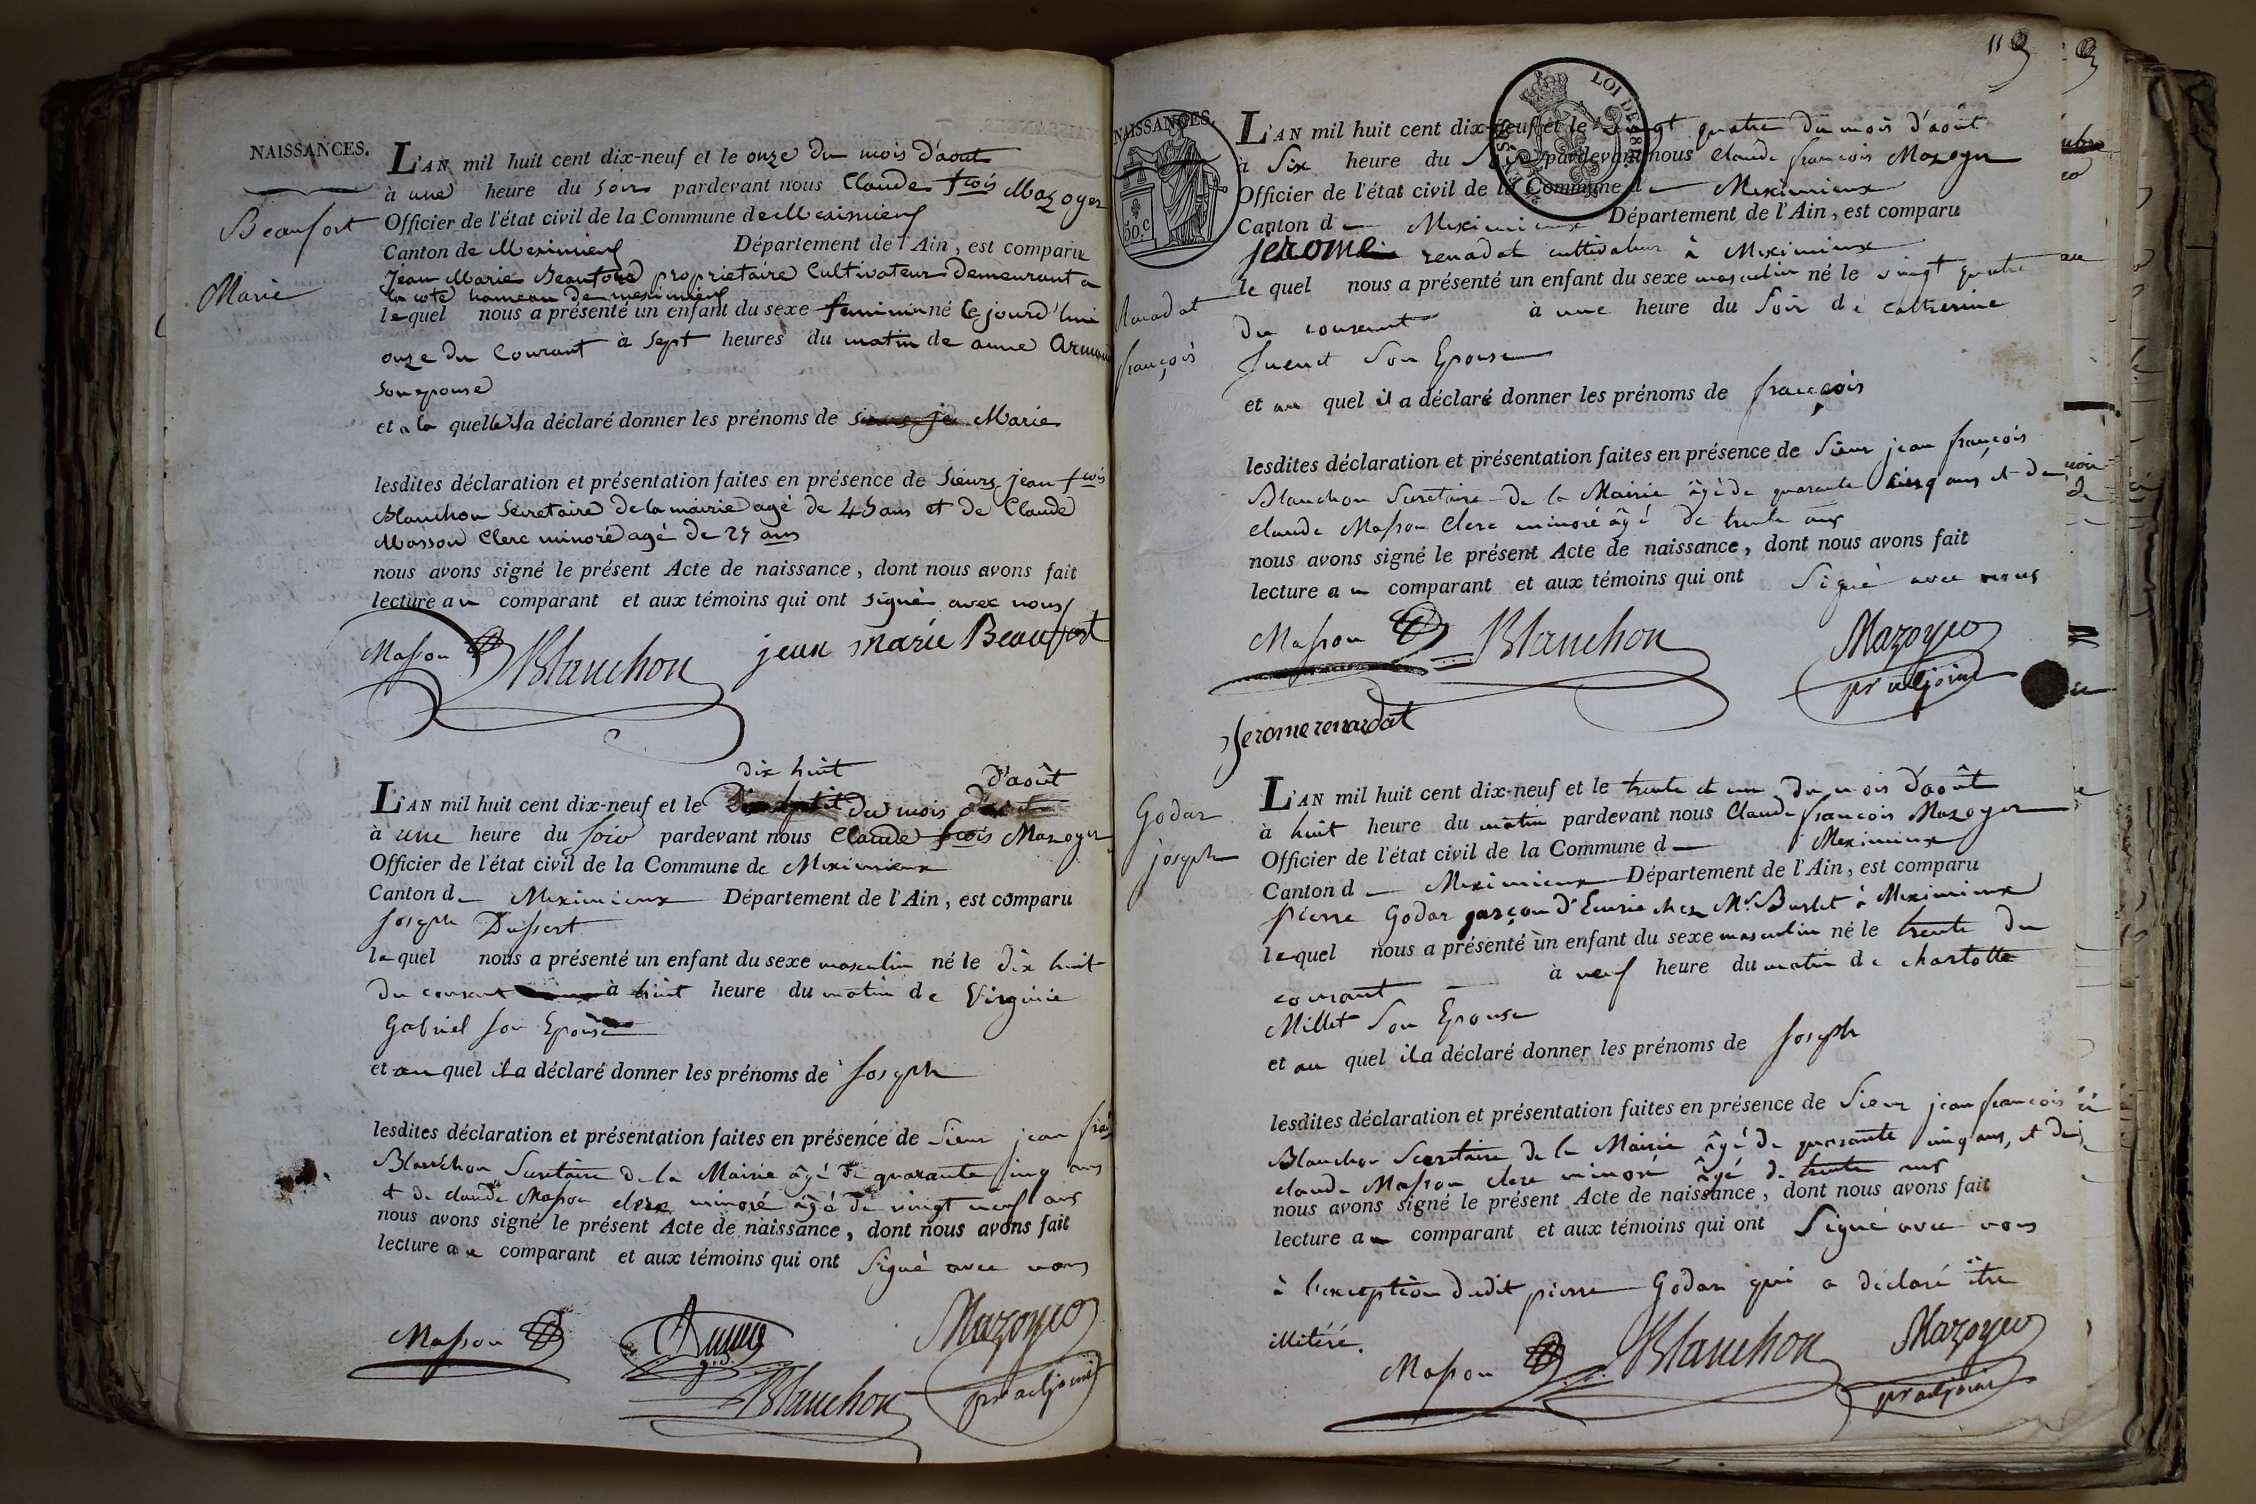 NAISSANCES.
Beaufort
Marie
L'AN mil huit cent dix-neuf et le onze du mois d'aout
à une heure du soir pardevant nous Claude fcois Mazoyer
Officier de l'état civil de la Commune de Meximieux
Canton de Meximieux Département de l'Ain, est comparu
Jean Marie Beaufort proprietaire Cultivateur demeurant a
la cote hameau de meximieux
lequel nous a présenté un enfant du sexe feminin né le jourd'hui
onze du Courant à sept heures du matin de anne
son epouse
et a la quelle il a déclaré donner les prénoms de Marie
lesdites déclaration et présentation faites en présence de Sieurs jean fcois
Blanchon Secretaire de la mairie agé de 45 ans et de Claude
Masson Clerc minoré agé de 29 ans
nous avons signé le présent Acte de naissance, dont nous avons fait
lecture au comparant et aux témoins qui ont signé avec nous
Masson Blanchon jean marie Beaufort
dix huit d'août
L'AN mil huit cent dix-neuf et le du mois
à une heure du soir pardevant nous Claude fcois Mazoyer
Officier de l'état civil de la Commune de Meximieux
Canton de Meximieux Département de l'Ain, est comparu
Joseph Dussert
lequel nous a présenté un enfant du sexe masculin né le dix huit
du courant à huit heure du matin de Virginie
Gabriel son Epouse
et au quel il a déclaré donner les prénoms de Joseph
lesdites déclaration et présentation faites en présence de Sieur jean
Blanchon Secretaire de la Mairie âgé de quarante cinq ans
et de claude Masson clerc minoré âgé de vingt neuf ans
nous avons signé le présent Acte de naissance, dont nous avons fait
lecture au comparant et aux témoins qui ont Signé avec nous
Masson Mazoyer
Blanchon pr adjoint
NAISSANCES.
50.C
LOI DE 1816
Renadat
françois
L'AN mil huit cent dix-neuf et le vingt quatre du mois d'août
à Six heure du Soir pardevant nous Claude françois Mazoyer
Officier de l'état civil de la Commune de Meximieux
Canton de Meximieux Département de l'Ain, est comparu
jérome renadat cultivateur à Meximieux
lequel nous a présenté un enfant du sexe masculin né le vingt quatre
du courant à une heure du Soir de catherine
son Epouse
et au quel il a déclaré donner les prénoms de françois
lesdites déclaration et présentation faites en présence de Sieur jean françois
Blanchon Secretaire de la Mairie âgé de quarante cinq ans et de
claude Masson Clerc minoré âgé de trente ans
nous avons signé le présent Acte de naissance, dont nous avons fait
lecture au comparant et aux témoins qui ont Signé avec nous
Masson Blanchon Mazoyer
pr adjoint
Jerome renardat
Godar
joseph
L'AN mil huit cent dix-neuf et le trente et un du mois d'août
à huit heure du matin pardevant nous Claude françois Mazoyer
Officier de l'état civil de la Commune de Meximieux
Canton de Meximieux Département de l'Ain, est comparu
pierre Godar garçon d'Ecurie chez Mr Burlet à Meximieux
lequel nous a présenté un enfant du sexe masculin né le trente du
courant à neuf heure du matin de charlotte
Millet Son Epouse
et au quel il a déclaré donner les prénoms de Joseph
lesdites déclaration et présentation faites en présence de Sieur jean françois
Blanchon Secretaire de la Mairie âgé de quarante cinq ans, et de
claude Masson clerc minoré âgé de trente ans
nous avons signé le présent Acte de naissance, dont nous avons fait
lecture au comparant et aux témoins qui ont Signé avec nous
à l'exception dudit pierre Godar qui a déclaré être
illitéré.
Masson Blanchon Mazoyer
pr adjoint